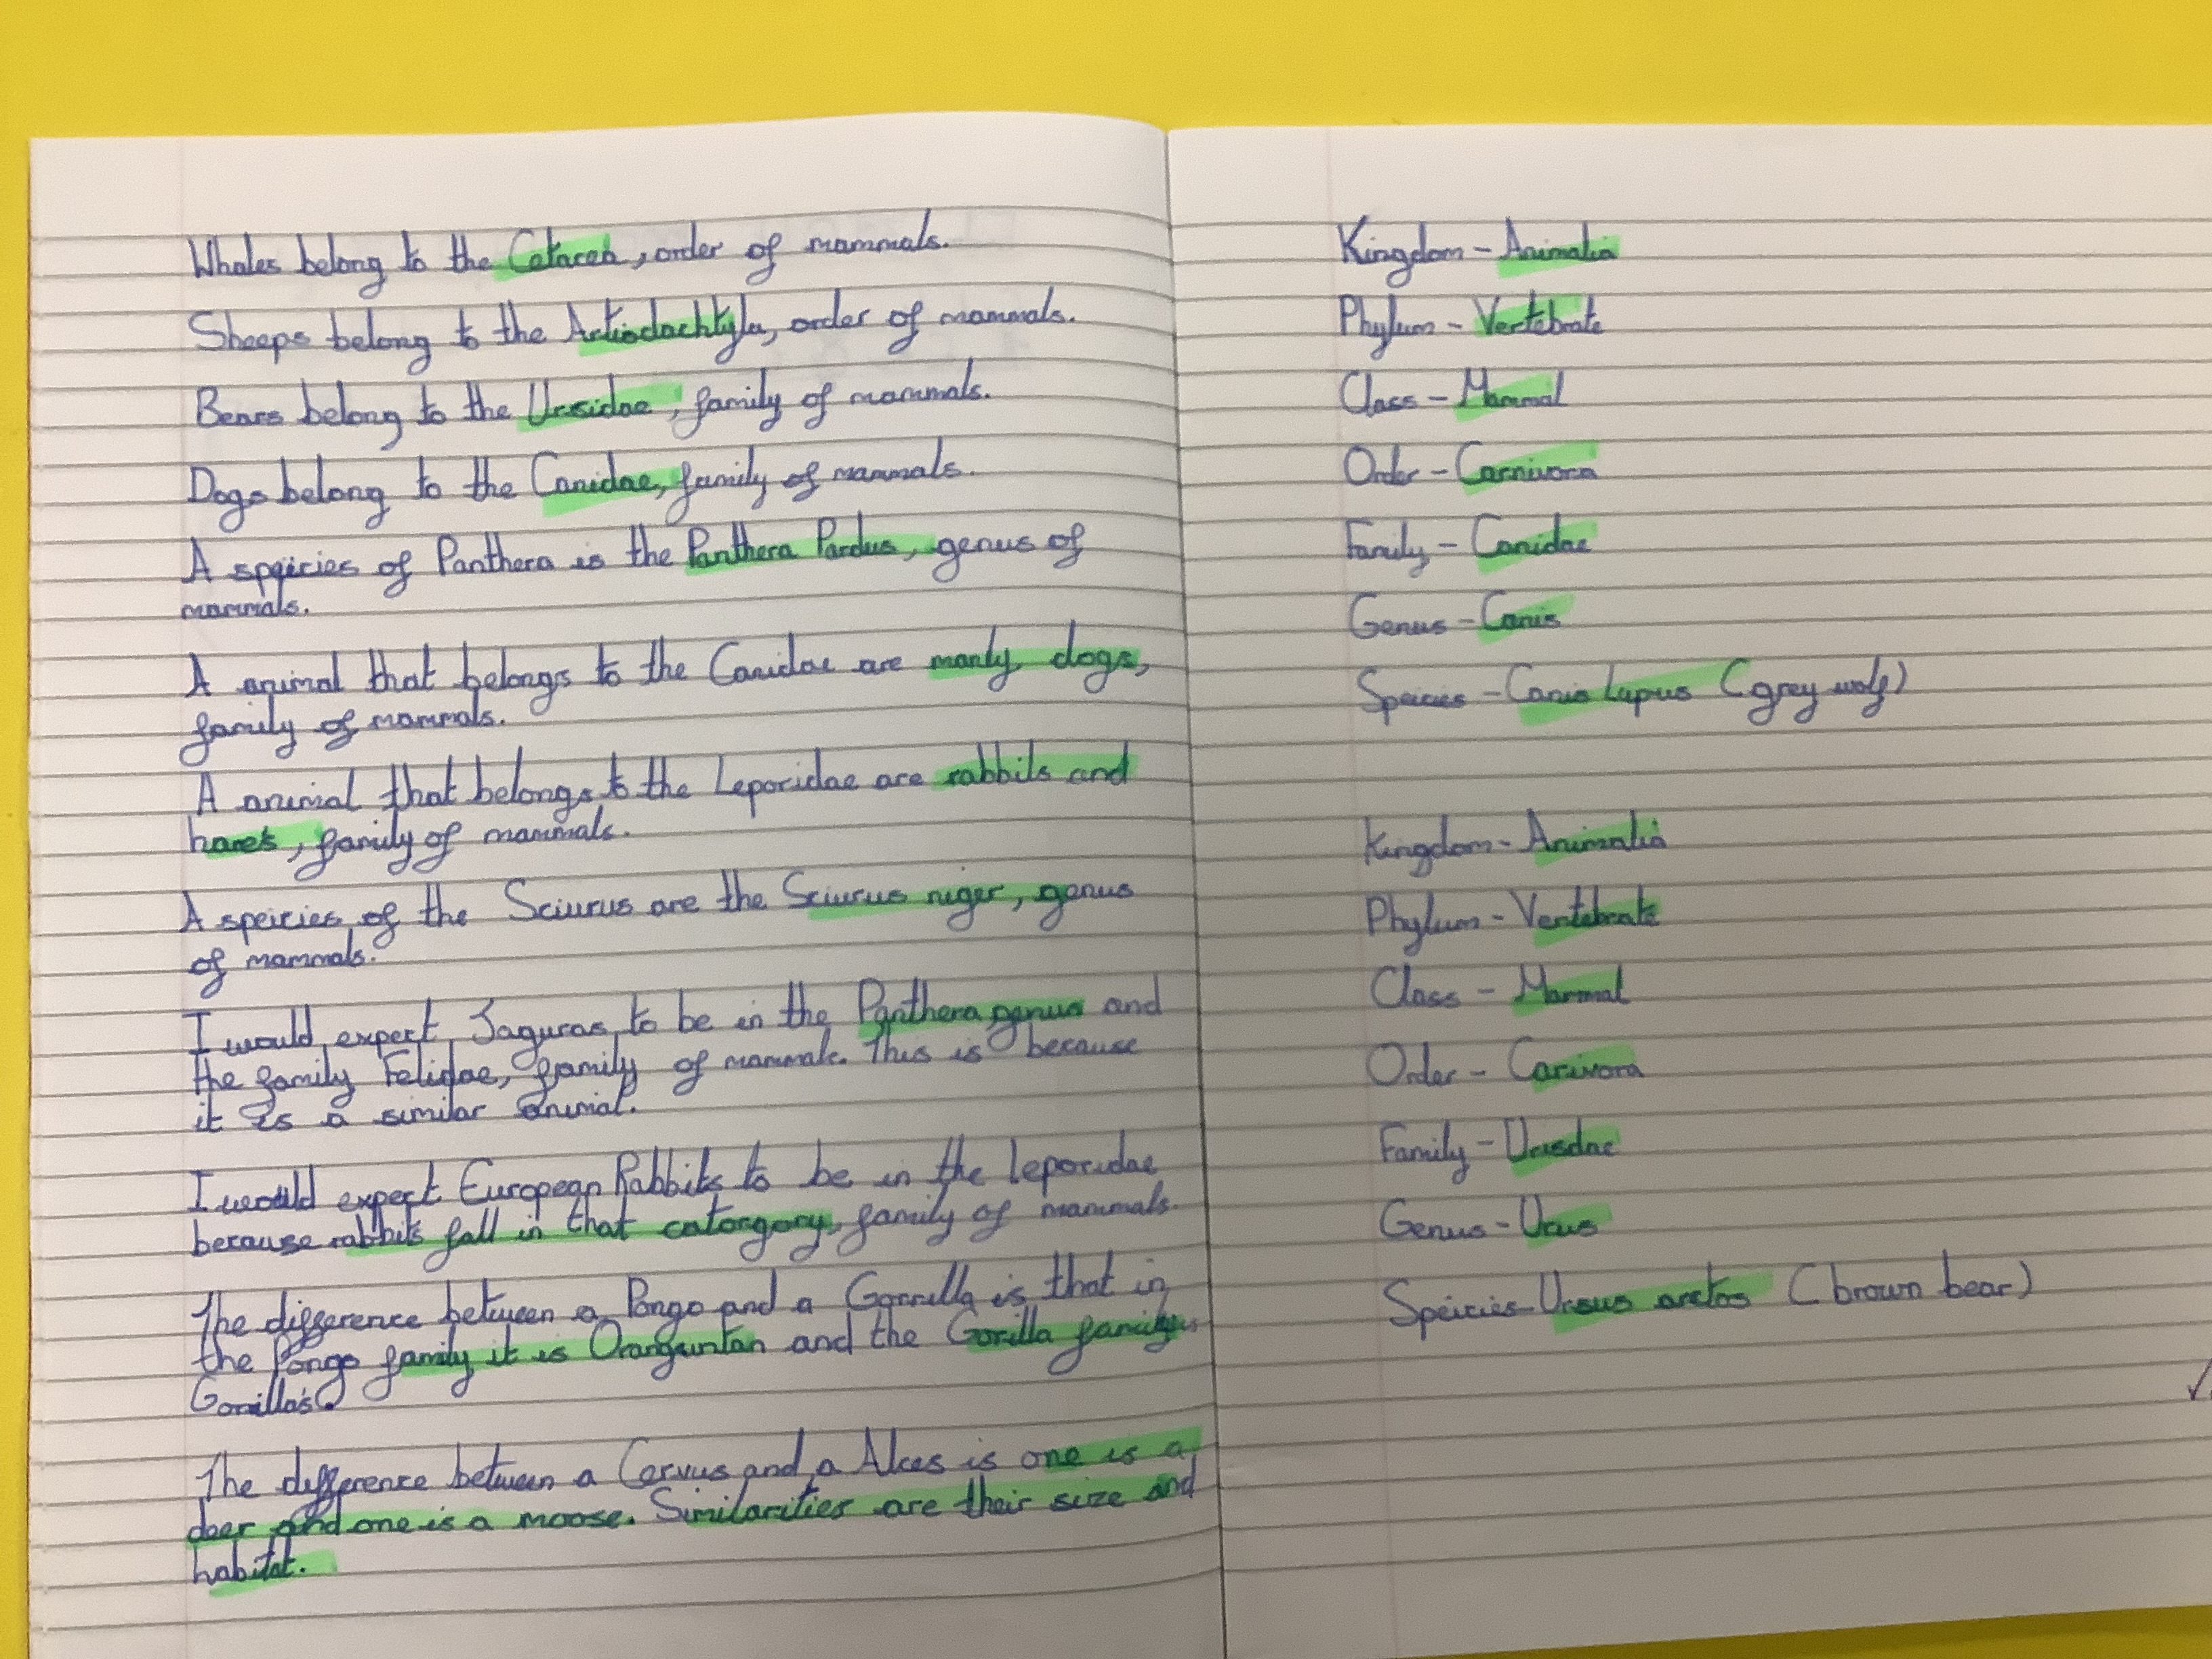 Whales belong to the Cetacea, order of mammals.
Sheeps belong to the Artiodachtyla, order of mammals.
Bears belong to the Ursidae, family of mammals.
Dogs belong to the Canidae, family of mammals.
A speicies of Panthera is the Panthera Pardus, genus of
mammals.
A animal that belongs to the Canidae are manly dogs,
family of mammals.
A animal that belongs to the Leporidae are rabbits and
hares, family of mammals.
A speicies of the Sciurus are the Sciurus niger, genus
of mammals.
I would expect Jaguras to be in the Panthera genus and
the family Felidae, family of mammals. This is because
it is a similar animal.
I would expect European Rabbits to be in the leporidae
because rabbits fall in that catorgory, family of mammals.
The difference between a Pongo and a Gorrilla is that in
the Pongo family it is Orangauntan and the Gorilla family is
Gorrilla's.
The difference between a Cervus and a Alces is one is a
deer and one is a moose. Similarities are their size and
habitat.
Kingdom - Animalia
Phylum - Vertebrate
Class - Mammal
Order - Carnivora
Family - Canidae
Genus - Canis
Speicies - Canis Lupus (grey wolf)
Kingdom - Animalia
Phylum - Vertebrate
Class - Mammal
Order - Carivora
Family - Urisdae
Genus - Urus
Speicies - Ursus arctos (brown bear)